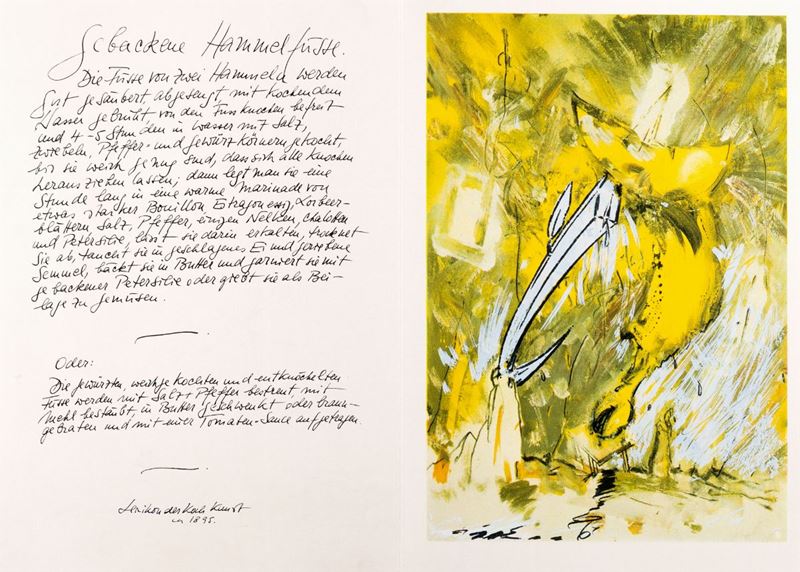 Gebackene Hammelfüsse.
Die Füsse von zwei Hammeln werden
gut gesäubert, abgesengt, mit kochendem
Wasser gebrüht von den Fussknochen befreit
und 4-5 Stunden in Wasser mit Salz,
Zwiebeln, Pfeffer- und Gewürzkörnern gekocht,
bis sie weich genug sind, dass sich alle Knochen
herausziehen lassen; dann legt man sie eine
Stunde lang in eine warme Marinade von
etwas starker Bouillon Estragonessig, Lorbeer-
blättern Salz, Pfeffer, einigen Nelken, Chalotten
und Petersilie, lässt sie darin erkalten, trocknet
sie ab, taucht sie in geschlagenes Ei und geriebene
Semmel, bäckt sie in Butter und garniert sie mit
gebackener Petersilie oder giebt sie als Bei-
lage zu Gemüsen.
Oder:
Die gewürzten, weichgekochten und entknöchelten
Füsse werden mit Salz + Pfeffer bestreut, mit
Mehl bestäubt, in Butter geschwenkt oder braun-
gebraten und mit einer Tomaten-Sauce aufgetragen.
Lexikon der Koch Kunst
ca 1895.